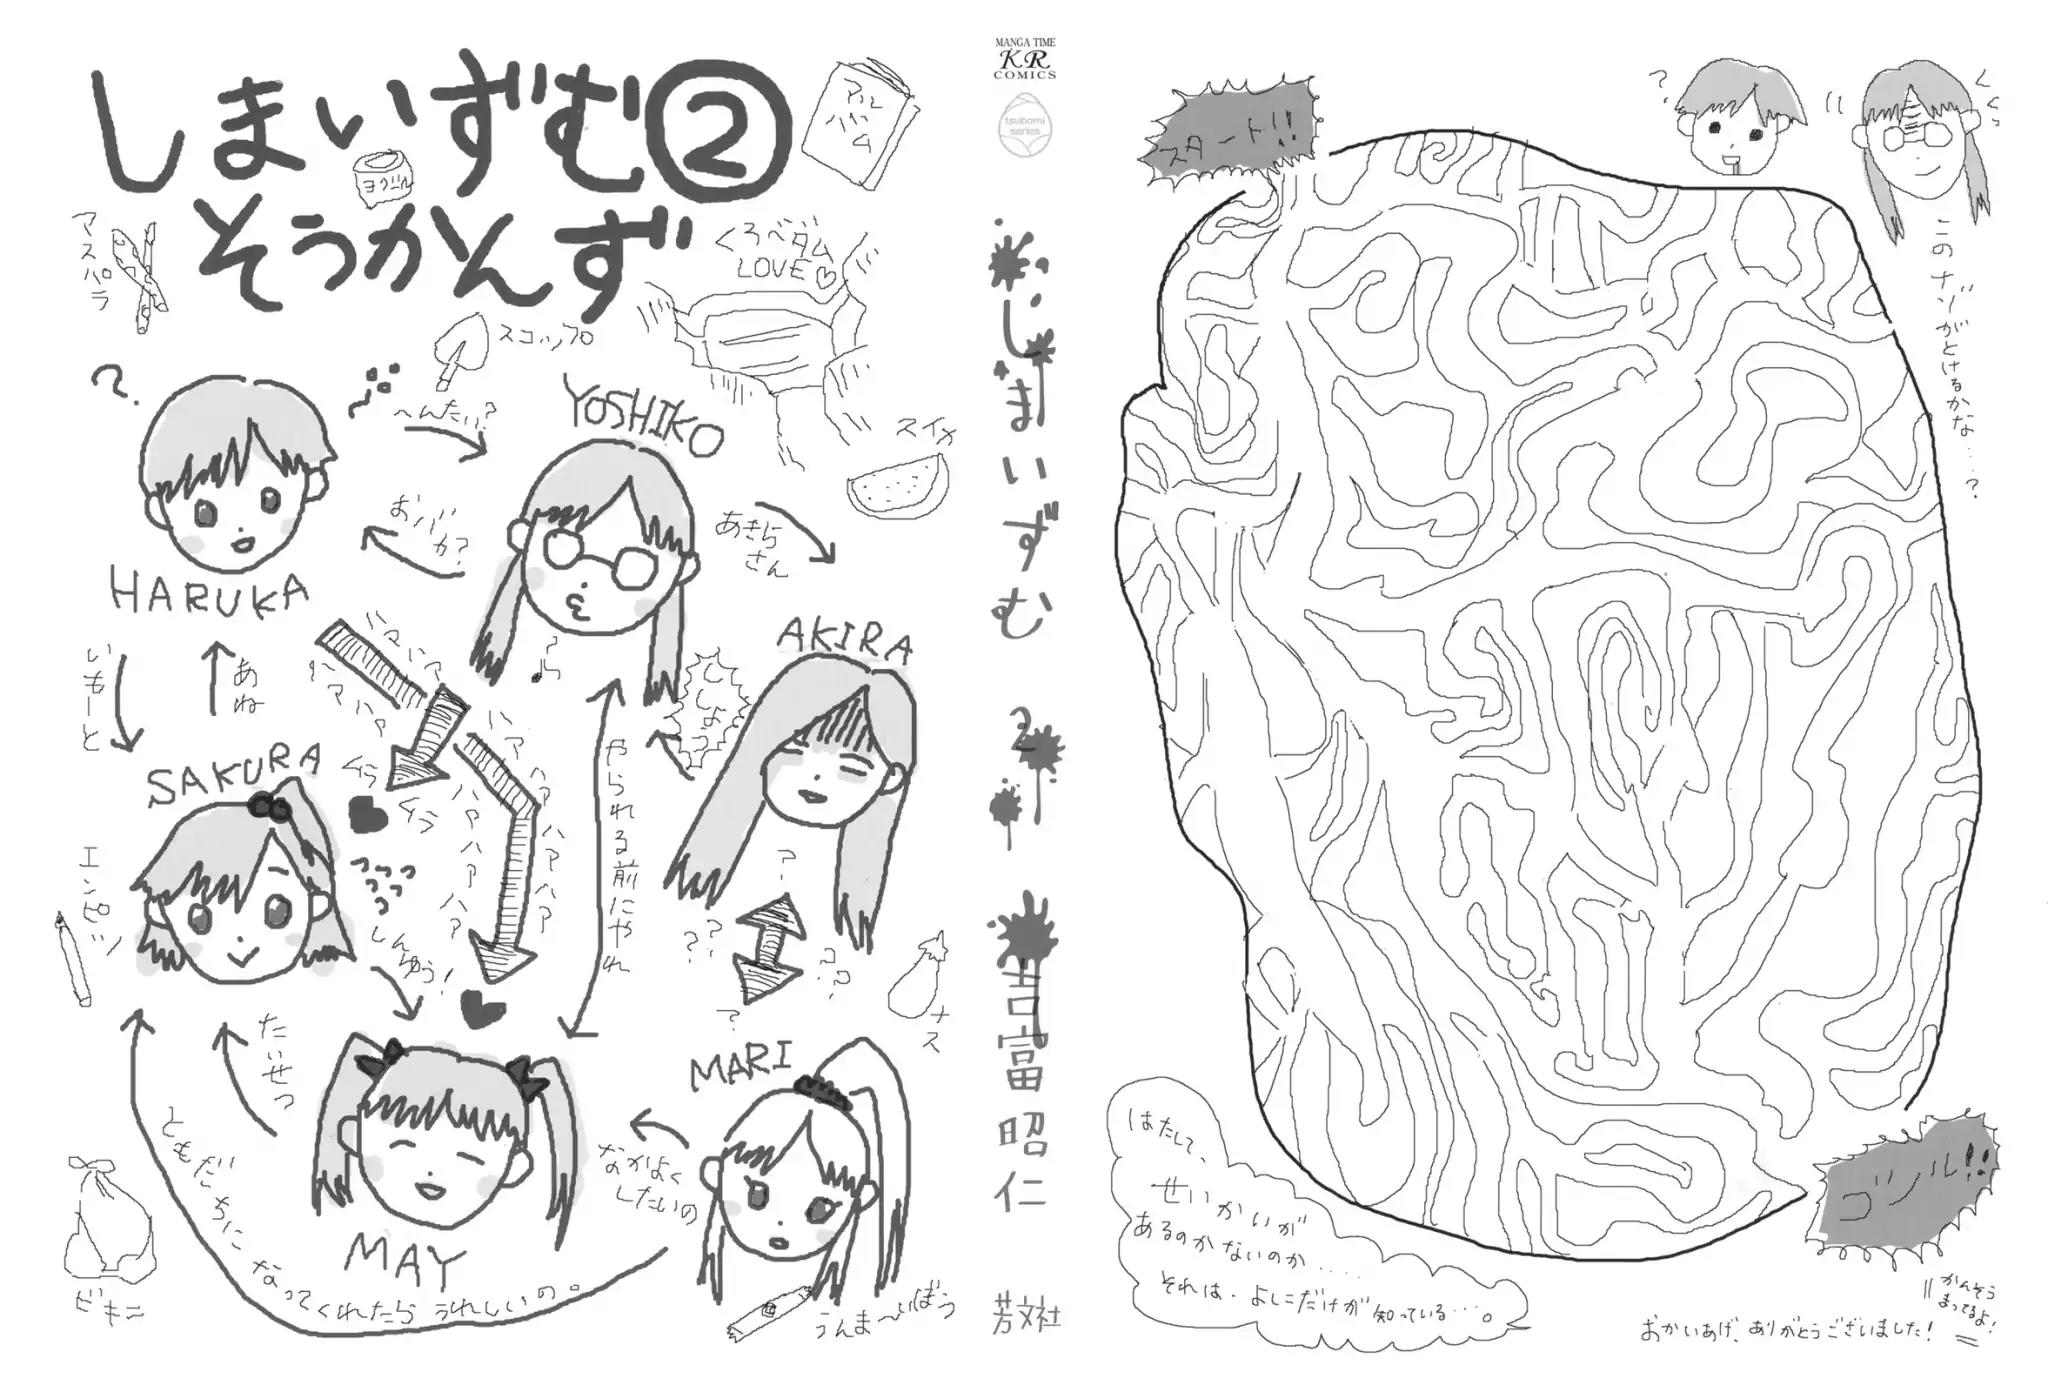 しまいずむ②
そうかんず
アルバム
ヨーグルト
アスパラ
スコップ
くろベダム
LOVE♡
スイカ
?
へんたい?
YOSHIKO
おバカ?
あきら
さん
HARUKA
AKIRA
いもーと
あね
ハアハアハアハア
ししょう
SAKURA
ムラ
ムラ
やられる前にやれ
エンピツ
しんゆう!
ナス
たいせつ
MARI
なかよく
したいの
MAY
ともだちになってくれたらうれしいの。
ビキニ
うんま〜いぼう
MANGA TIME
KR
COMICS
tsubomi
series
しまいずむ
2
吉富昭仁
芳文社
スタート!!
?
このナゾがとけるかな…?
ゴール!!
はたして、
せいかいが
あるのかないのか.....
それは、よしこだけが知っている…。
かんそう
まってるよ!
おかいあげ、ありがとうございました!